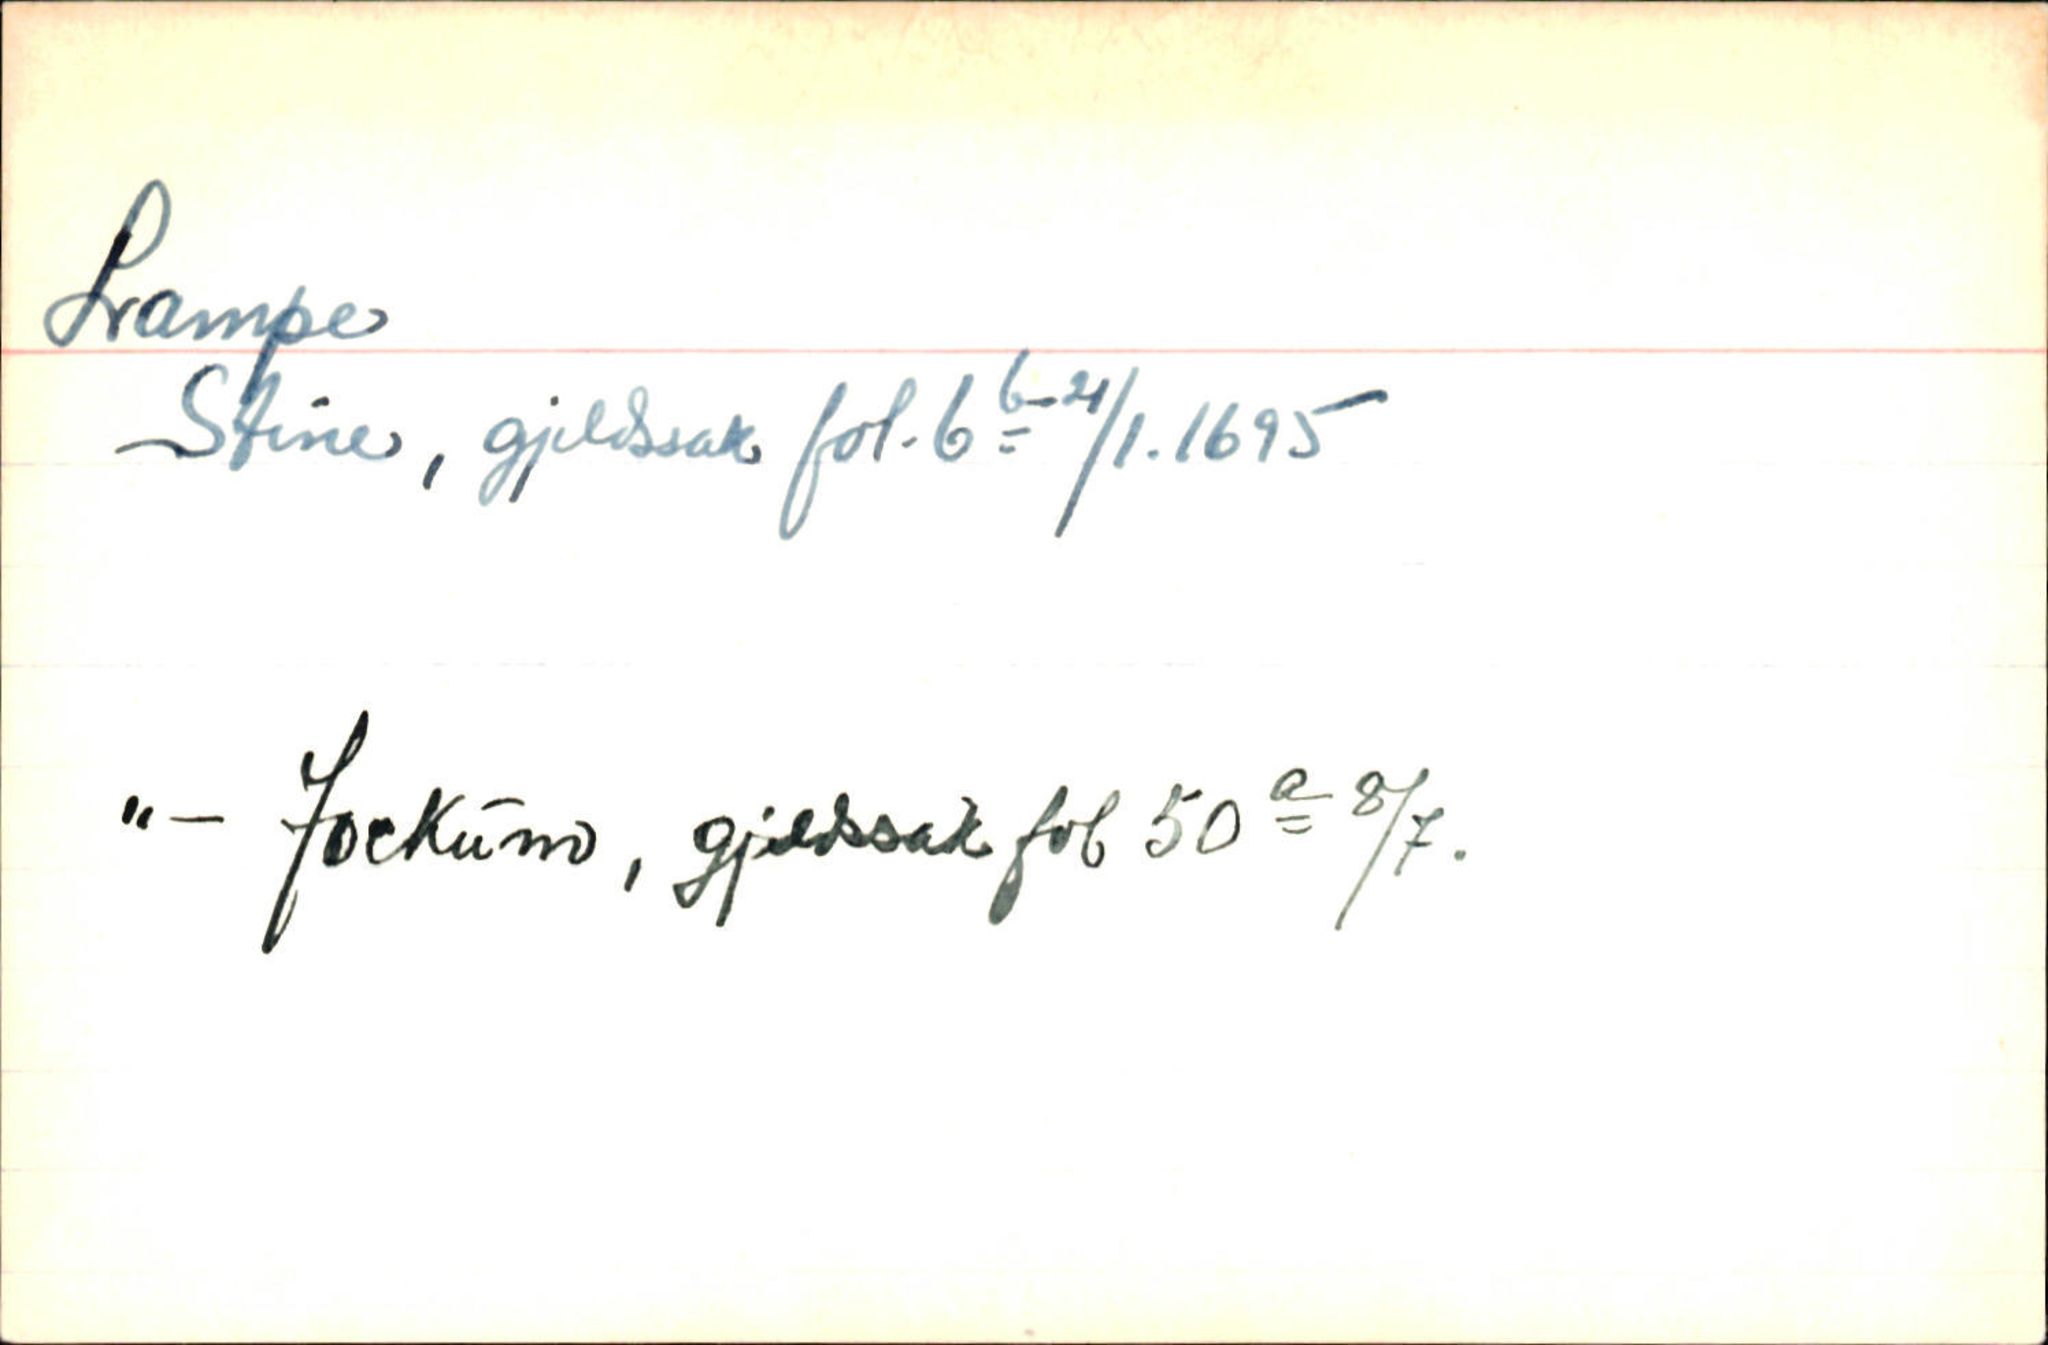 Lampe
Stine, gjeldssak fol. 6 b - 21/1. 1695
"- Jockum, gjeldssak fol 50 a 8/7.